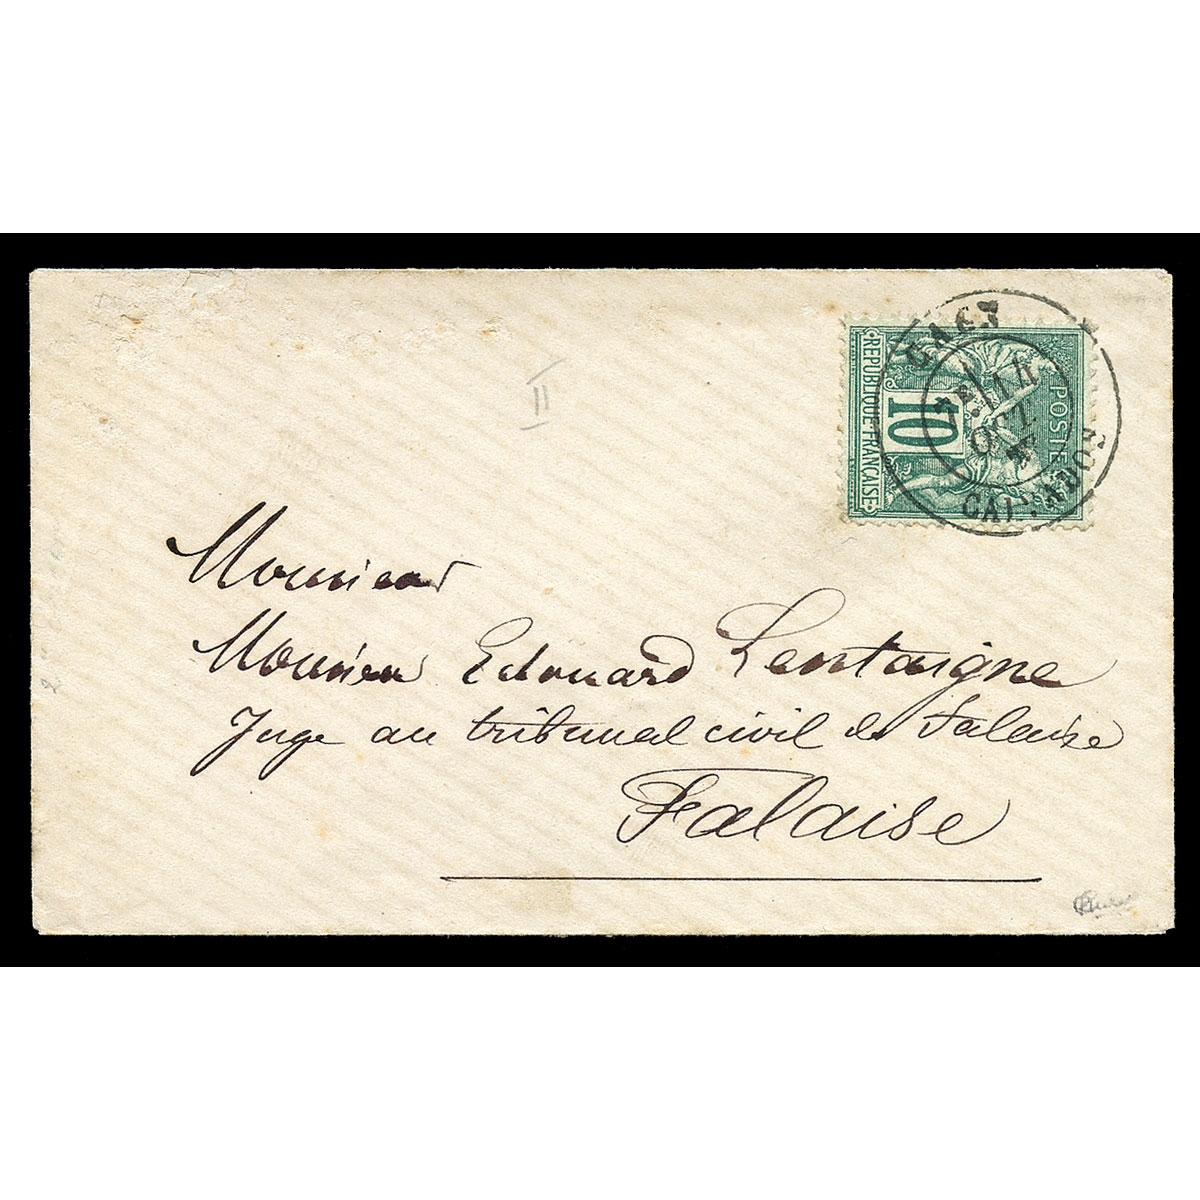 CAEN
14
OCT
CALVADOS
REPUBLIQUE FRANÇAISE
10
POSTE
II
Monsieur
Monsieur Edouard Lentaigne
Juge au tribunal civil de Falaise
Falaise